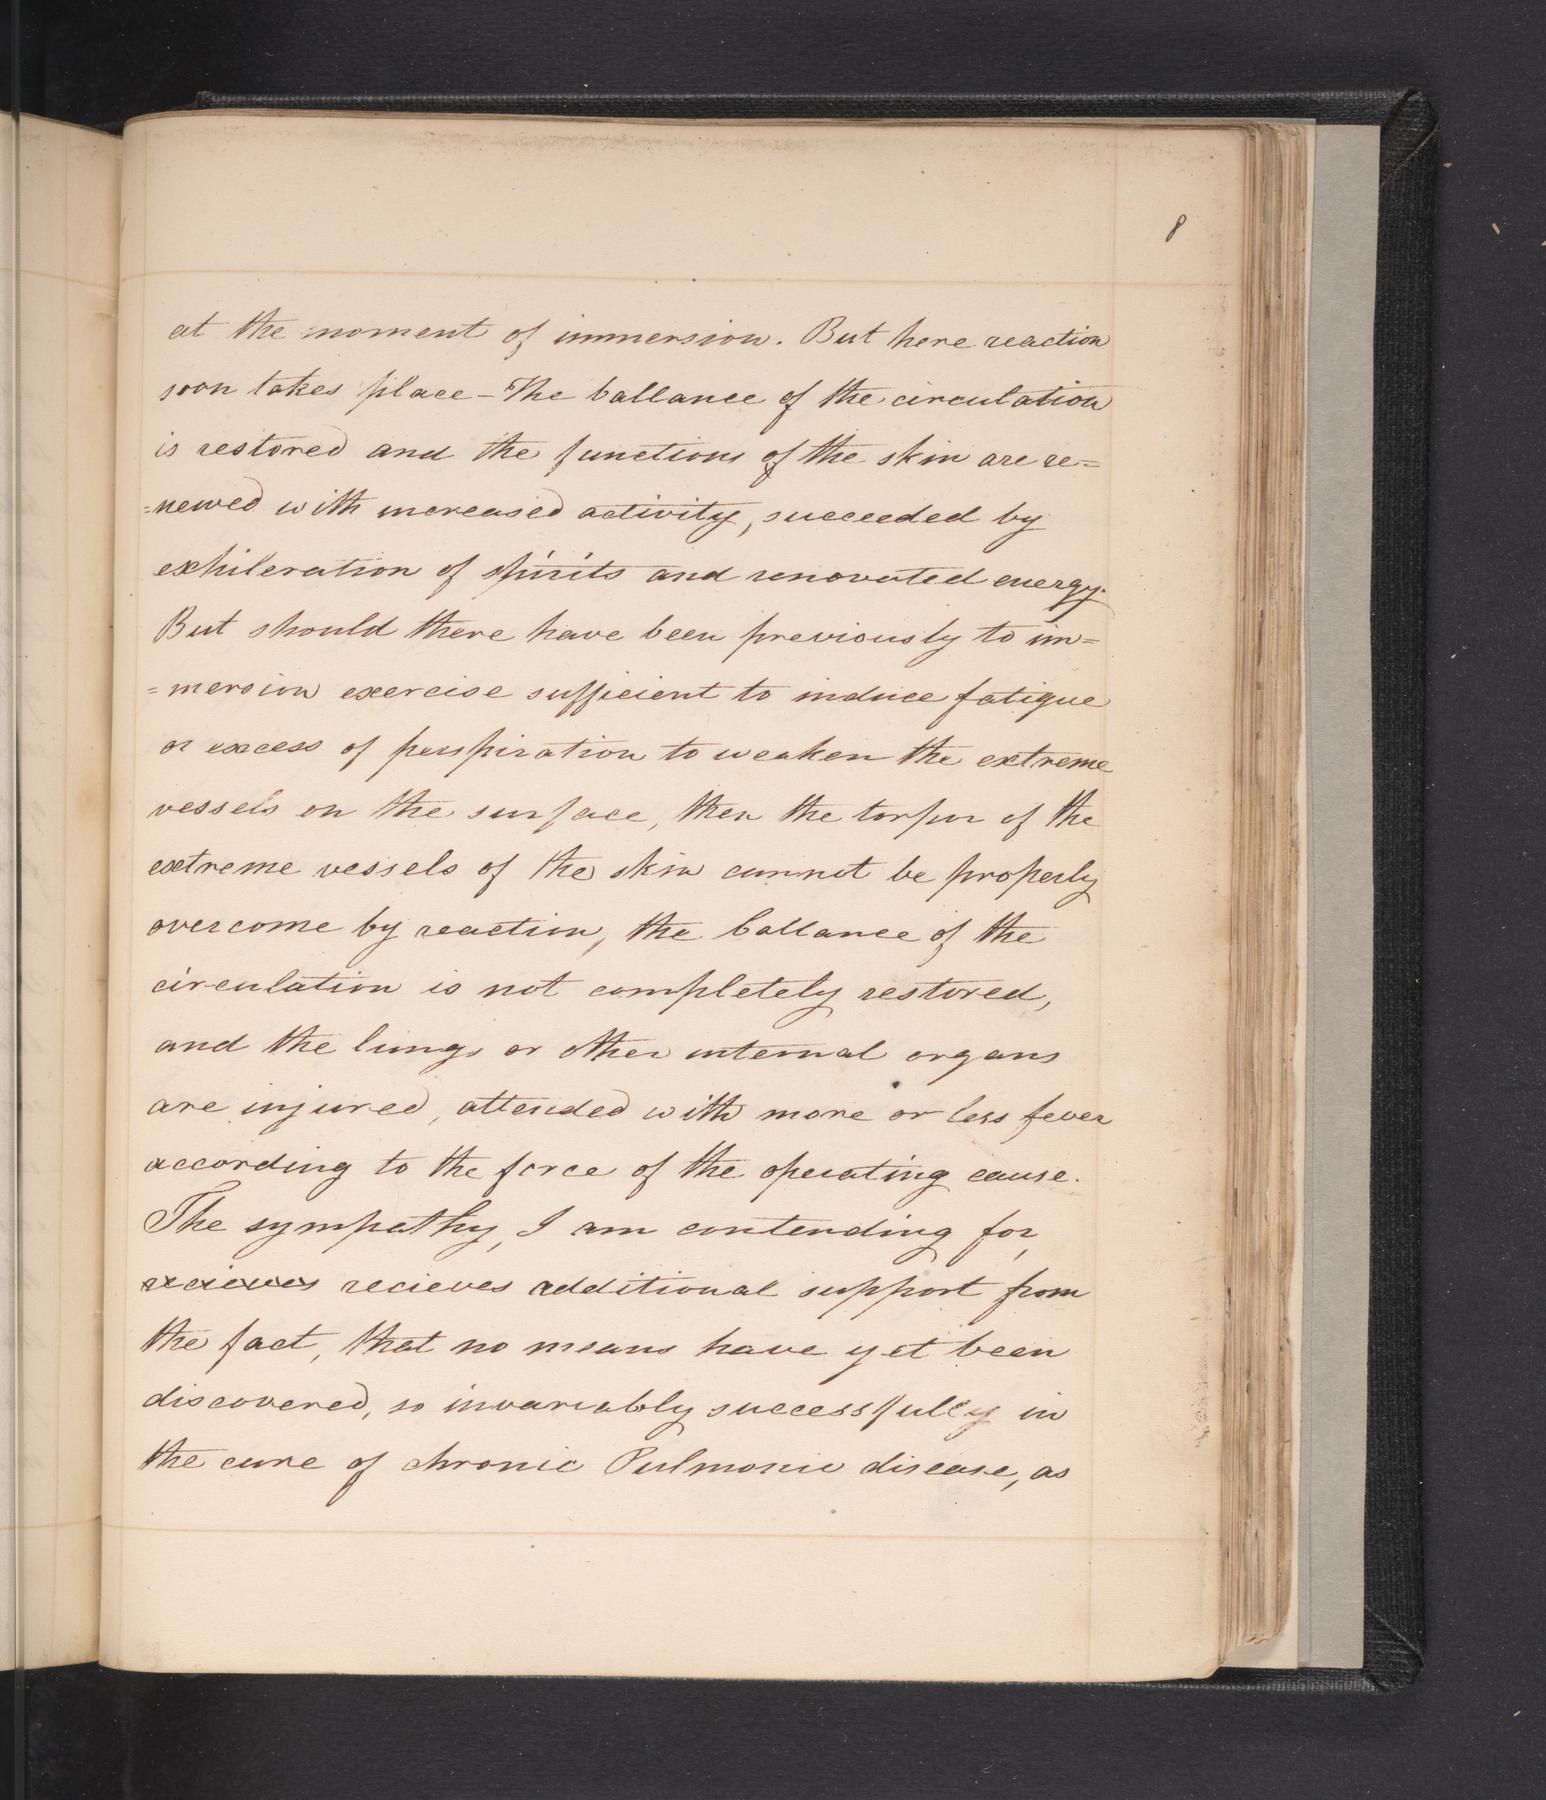 8
at the moment of immersion. But here reaction
soon takes place - The ballance of the circulation
is restored and the functions of the skin are re=
=newed with increased activity, succeeded by
exhileration of spirits and renovated energy.
But should there have been previously to im=
=mersion exercise sufficient to induce fatigue
or excess of perspiration to weaken the extreme
vessels on the surface, then the torpor of the
extreme vessels of the skin cannot be properly
overcome by reaction, the ballance of the
circulation is not completely restored,
and the lungs or other internal organs
are injured, attended with more or less fever
according to the force of the operating cause.
The sympathy, I am contending for,
recieves additional support from
the fact, that no means have yet been
discovered, so invariably successfully in
the cure of chronic Pulmonic disease, as